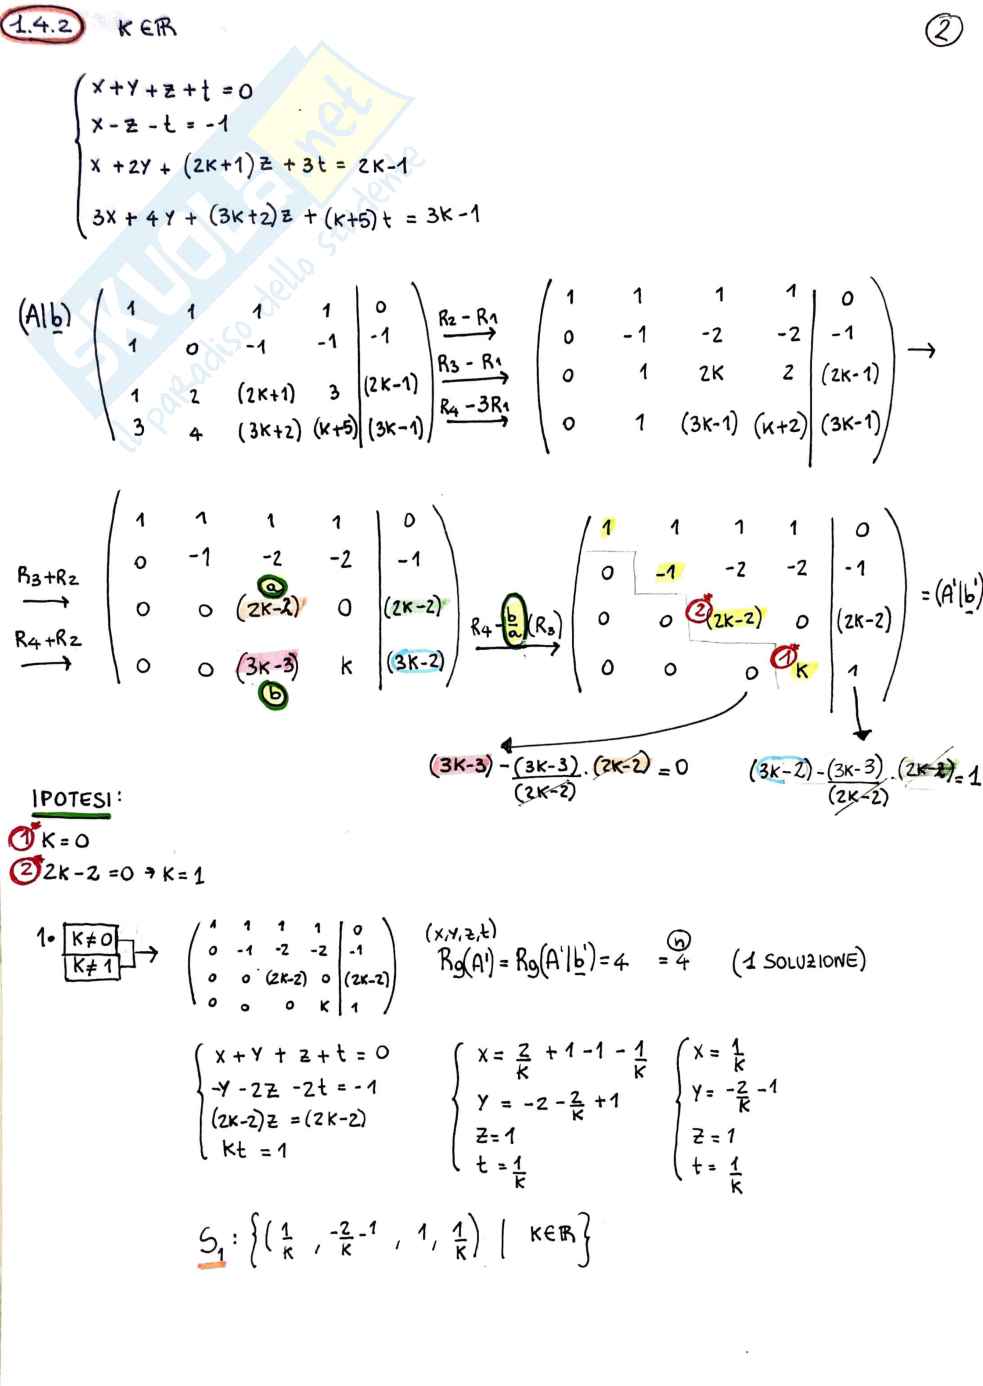 1.4.2 K∈ℝ 2
x+y+z+t=0
x-z-t=-1
x+2y+(2k+1)z+3t=2k-1
3x+4y+(3k+2)z+(k+5)t=3k-1
SKUOLA.net
il paradiso dello studente
(A|b) R2-R1 R3-R1 R4-3R1 →
1 1 1 1 | 0
1 0 -1 -1 | -1
1 2 (2k+1) 3 | (2k-1)
3 4 (3k+2) (k+5) | (3k-1)
1 1 1 1 | 0
0 -1 -2 -2 | -1
0 1 2k 2 | (2k-1)
0 1 (3k-1) (k+2) | (3k-1)
R3+R2
R4+R2
1 1 1 1 | 0
0 -1 -2 -2 | -1
a
0 0 (2k-2) 0 | (2k-2)
0 0 (3k-3) k | (3k-2)
b
R4-b/a(R3)
1 1 1 1 | 0
0 -1 -2 -2 | -1
0 0 2* (2k-2) 0 | (2k-2)
0 0 0 1* k | 1
=(A'|b')
(3k-3)-(3k-3)/(2k-2)·(2k-2)=0
(3k-2)-(3k-3)/(2k-2)·(2k-2)=1
IPOTESI:
1* K=0
2* 2k-2=0 → k=1
1. K≠0 K≠1 →
1 1 1 1 | 0
0 -1 -2 -2 | -1
0 0 (2k-2) 0 | (2k-2)
0 0 0 k | 1
(x,y,z,t)
Rg(A')=Rg(A'|b')=4 =4 n (1 SOLUZIONE)
x+y+z+t=0
-y-2z-2t=-1
(2k-2)z=(2k-2)
kt=1
x=2/k+1-1-1/k
y=-2-2/k+1
z=1
t=1/k
x=1/k
y=-2/k-1
z=1
t=1/k
S1:{(1/k, -2/k-1, 1, 1/k) | K∈ℝ}